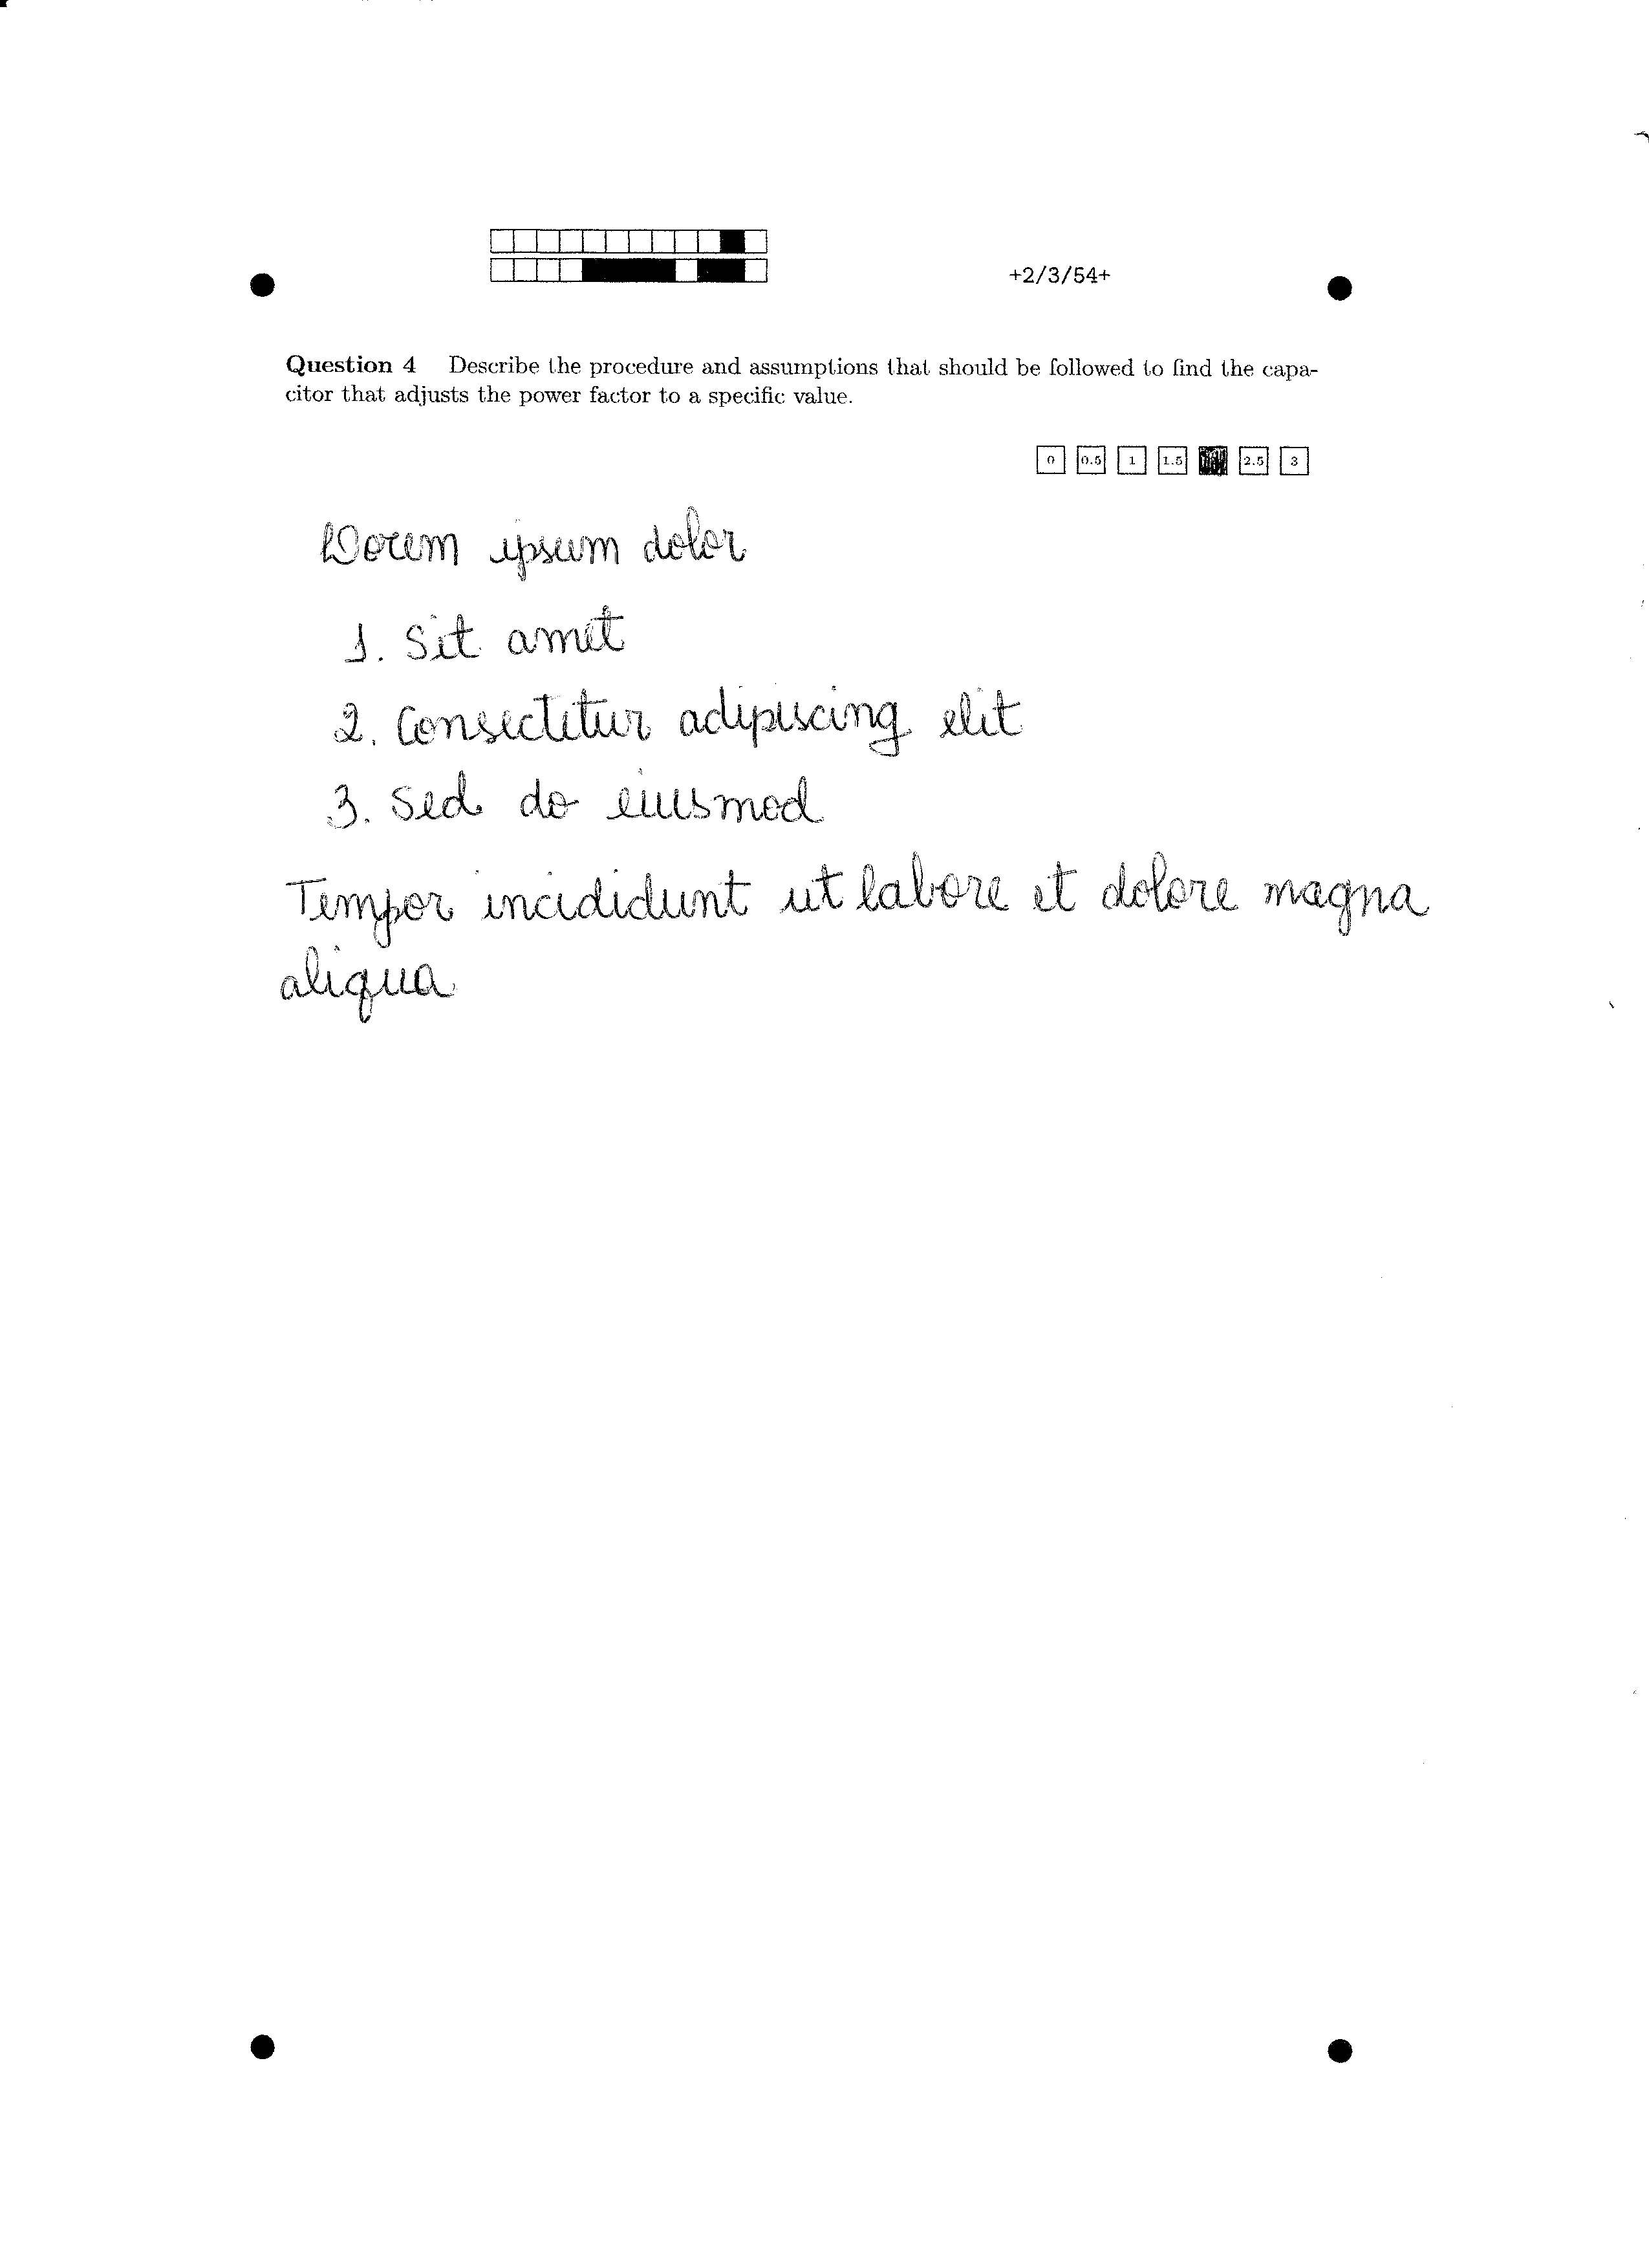 +2/3/54+
Question 4 Describe the procedure and assumptions that should be followed to find the capa-
citor that adjusts the power factor to a specific value.
0 0.5 1 1.5 2.5 3
Dorem ipsum dolor
1. Sit amet
2. Consectetur adipiscing elit
3. Sed do eiusmod
Tempor incididunt ut labore et dolore magna
aliqua